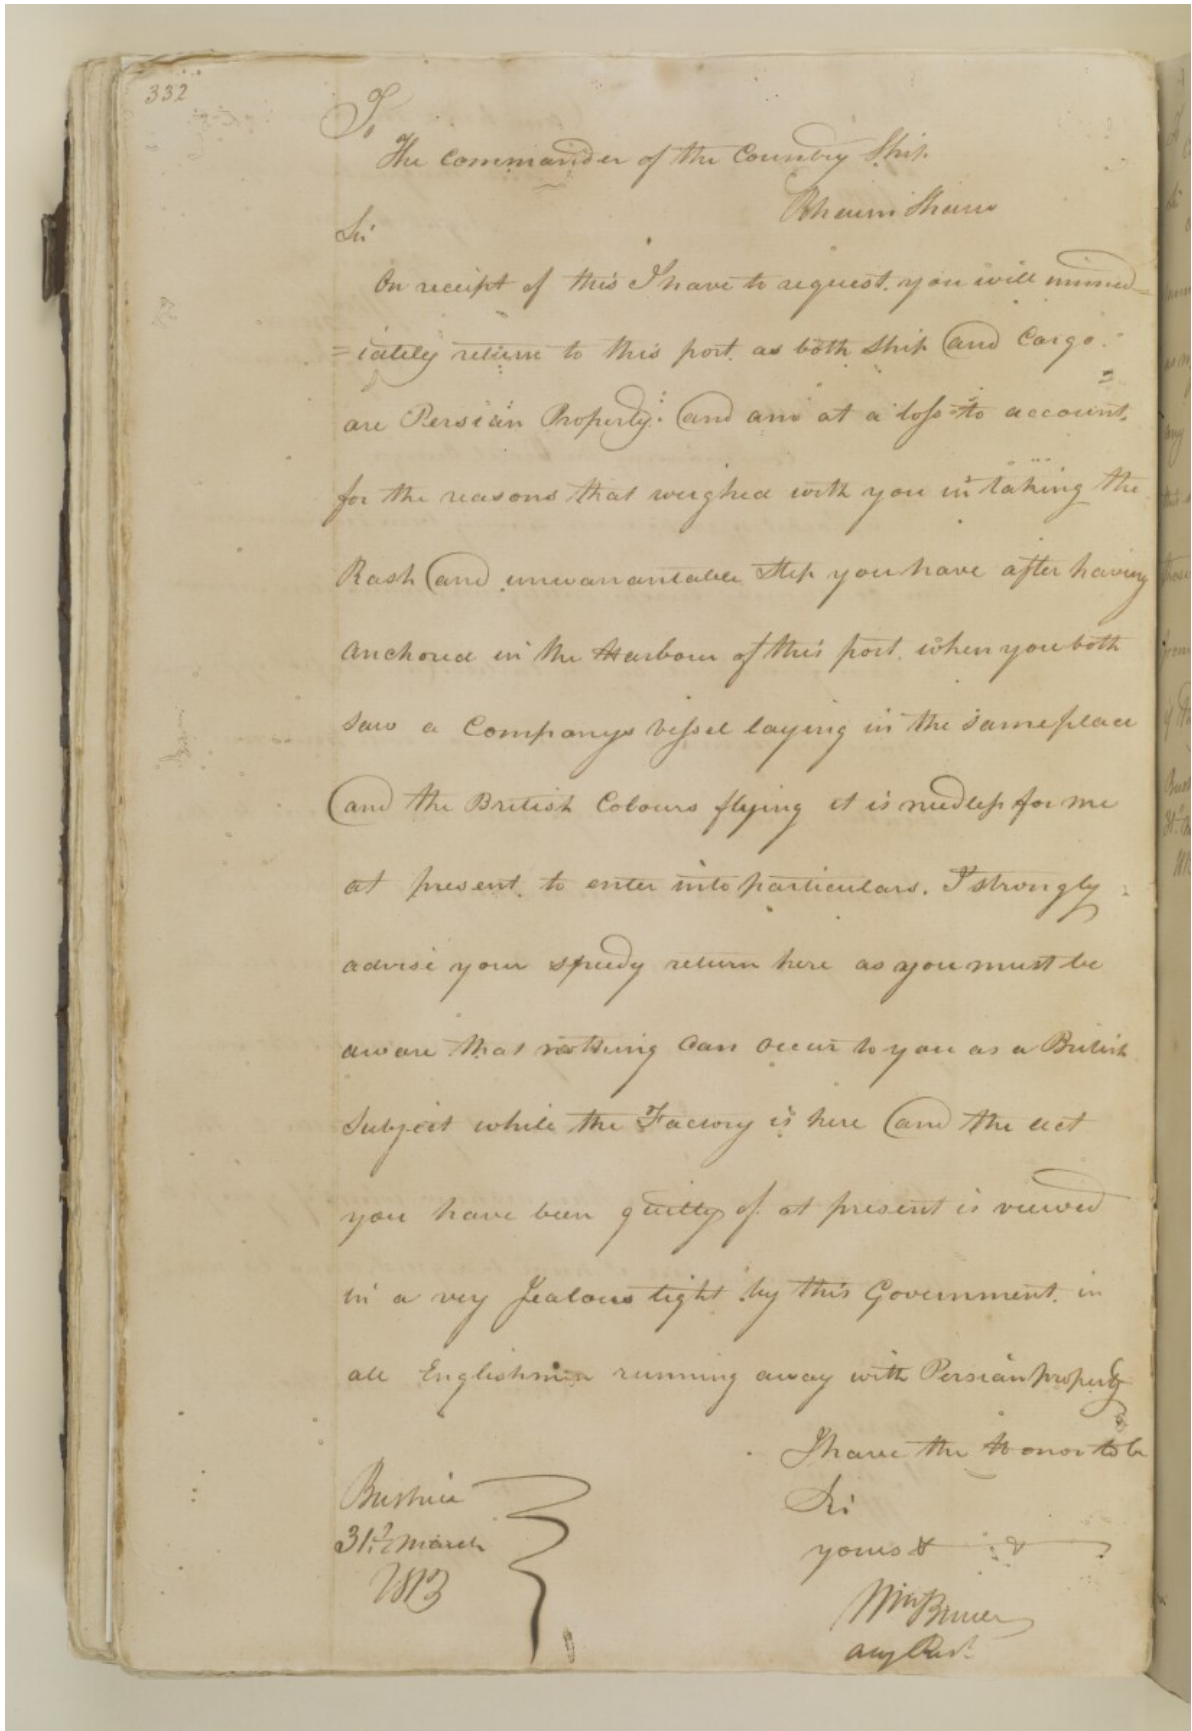 332
To
The Commander of the Country Ship
Sir
On receipt of this I have to request you will immed=
=iately return to this port as both Ship and Cargo
are Persian Property: and am at a loss to account
for the reasons that weighed with you in taking the
Rash and unwarrantable Step you have after having
anchored in the Harbour of this port. when you both
saw a Companys vessel laying in the same place
and the British Colours flying it is needless for me
at present to enter into particulars. I strongly
advise your speedy return here as you must be
aware that nothing can occur to you as a British
Subject while the Factory is here and the act
you have been guilty of at present is viewed
in a very Jealous light by this Government in
all Englishmen running away with Persian property
I have the Honor to be
Sir
yours & &
Bushire
31st March
Wm Bruce
Actg Rest.